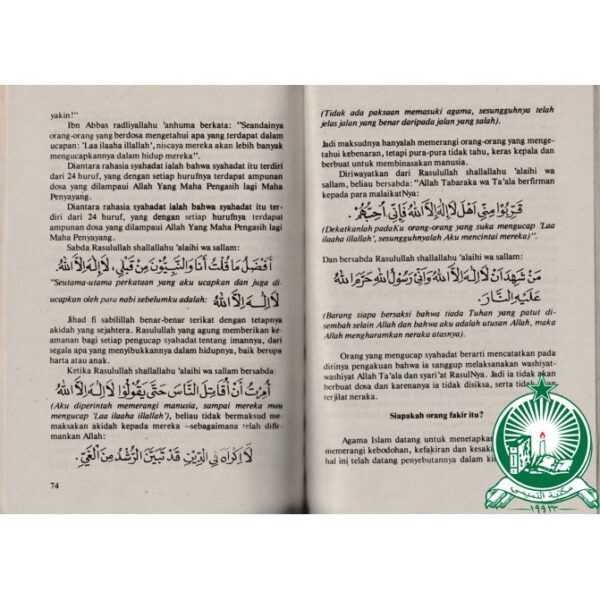 yakin!"
Ibn Abbas radliyallahu 'anhuma berkata: "Seandainya
orang-orang yang berdosa mengetahui apa yang terdapat dalam
ucapan: 'Laa ilaaha illallah', niscaya mereka akan lebih banyak
mengucapkannya dalam hidup mereka".
Diantara rahasia syahadat ialah bahwa syahadat itu terdiri
dari 24 huruf, yang dengan setiap huruf terdapat ampunan
dosa yang dilampaui Allah Yang Maha Pengasih lagi Maha
Penyayang.
Diantara rahasia syahadat ialah bahwa syahadat itu ter-
diri dari 24 huruf, yang dengan setiap hurufnya terdapat
ampunan dosa yang dilampaui Allah Yang Maha Pengasih lagi
Maha Penyayang.
Sabda Rasulullah shallallahu 'alaihi wa sallam:
أَفْضَلُ مَا قُلْتُ أَنَا وَالنَّبِيُّوْنَ مِنْ قَبْلِي، لَا إِلٰهَ إِلَّا اللهُ
"Seutama-utama perkataan yang aku ucapkan dan juga di-
ucapkan oleh para nabi sebelumku adalah: لَا إِلٰهَ إِلَّا اللهُ
Jihad fi sabilillah benar-benar terikat dengan tetapnya
akidah yang sejahtera. Rasulullah yang agung memberikan ke-
amanan bagi setiap pengucap syahadat tentang imannya, dari
segala apa yang menyibukkannya dalam hidupnya, baik berupa
harta atau anak.
Ketika Rasulullah shallallahu 'alaihi wa sallam bersabda:
أُمِرْتُ أَنْ أُقَاتِلَ النَّاسَ حَتَّى يَقُوْلُوْا لَا إِلٰهَ إِلَّا اللهُ
(Aku diperintah memerangi manusia, sampai mereka mau
mengucap 'Laa ilaaha illallah'), beliau tidak bermaksud me-
maksakan akidah kepada mereka --sebagaimana telah difir-
mankan Allah:
لَا إِكْرَاهَ فِي الدِّيْنِ قَدْ تَبَيَّنَ الرُّشْدُ مِنَ الْغَيِّ.
74
(Tidak ada paksaan memasuki agama, sesungguhnya telah
jelas jalan yang benar daripada jalan yang salah).
Jadi maksudnya hanyalah memerangi orang-orang yang menge-
tahui kebenaran, tetapi pura-pura tidak tahu, keras kepala dan
berbuat untuk membinasakan manusia.
Diriwayatkan dari Rasulullah shallallahu 'alaihi wa
sallam, beliau bersabda: "Allah Tabaraka wa Ta'ala berfirman
kepada para malaikatNya:
قَرِّبُوْا مِنِّي أَهْلَ لَا إِلٰهَ إِلَّا اللهُ فَإِنِّي أُحِبُّهُمْ.
(Dekatkanlah padaKu orang-orang yang suka mengucap 'Laa
ilaaha illallah', sesungguhnyalah Aku mencintai mereka)".
Dan bersabda Rasulullah shallallahu 'alaihi wa sallam:
مَنْ شَهِدَ أَنْ لَا إِلٰهَ إِلَّا اللهُ وَأَنِّي رَسُوْلُ اللهِ حَرَّمَ اللهُ
عَلَيْهِ النَّارَ.
(Barang siapa bersaksi bahwa tiada Tuhan yang patut di-
sembah selain Allah dan bahwa aku adalah utusan Allah, maka
Allah mengharamkan neraka atasnya).
Orang yang mengucap syahadat berarti mencatatkan pada
dirinya pengakuan bahwa ia sanggup melaksanakan washiyat-
washiyat Allah Ta'ala dan syari'at RasulNya. Jadi ia tidak akan
berbuat dosa dan karenanya ia tidak disiksa, serta tidak
terjilat neraka.
Siapakah orang fakir itu?
Agama Islam datang untuk menetapkan
memerangi kebodohan, kefakiran dan
hal ini telah datang penyebutannya dalam
مكتبة القديمي
١٩٩٣